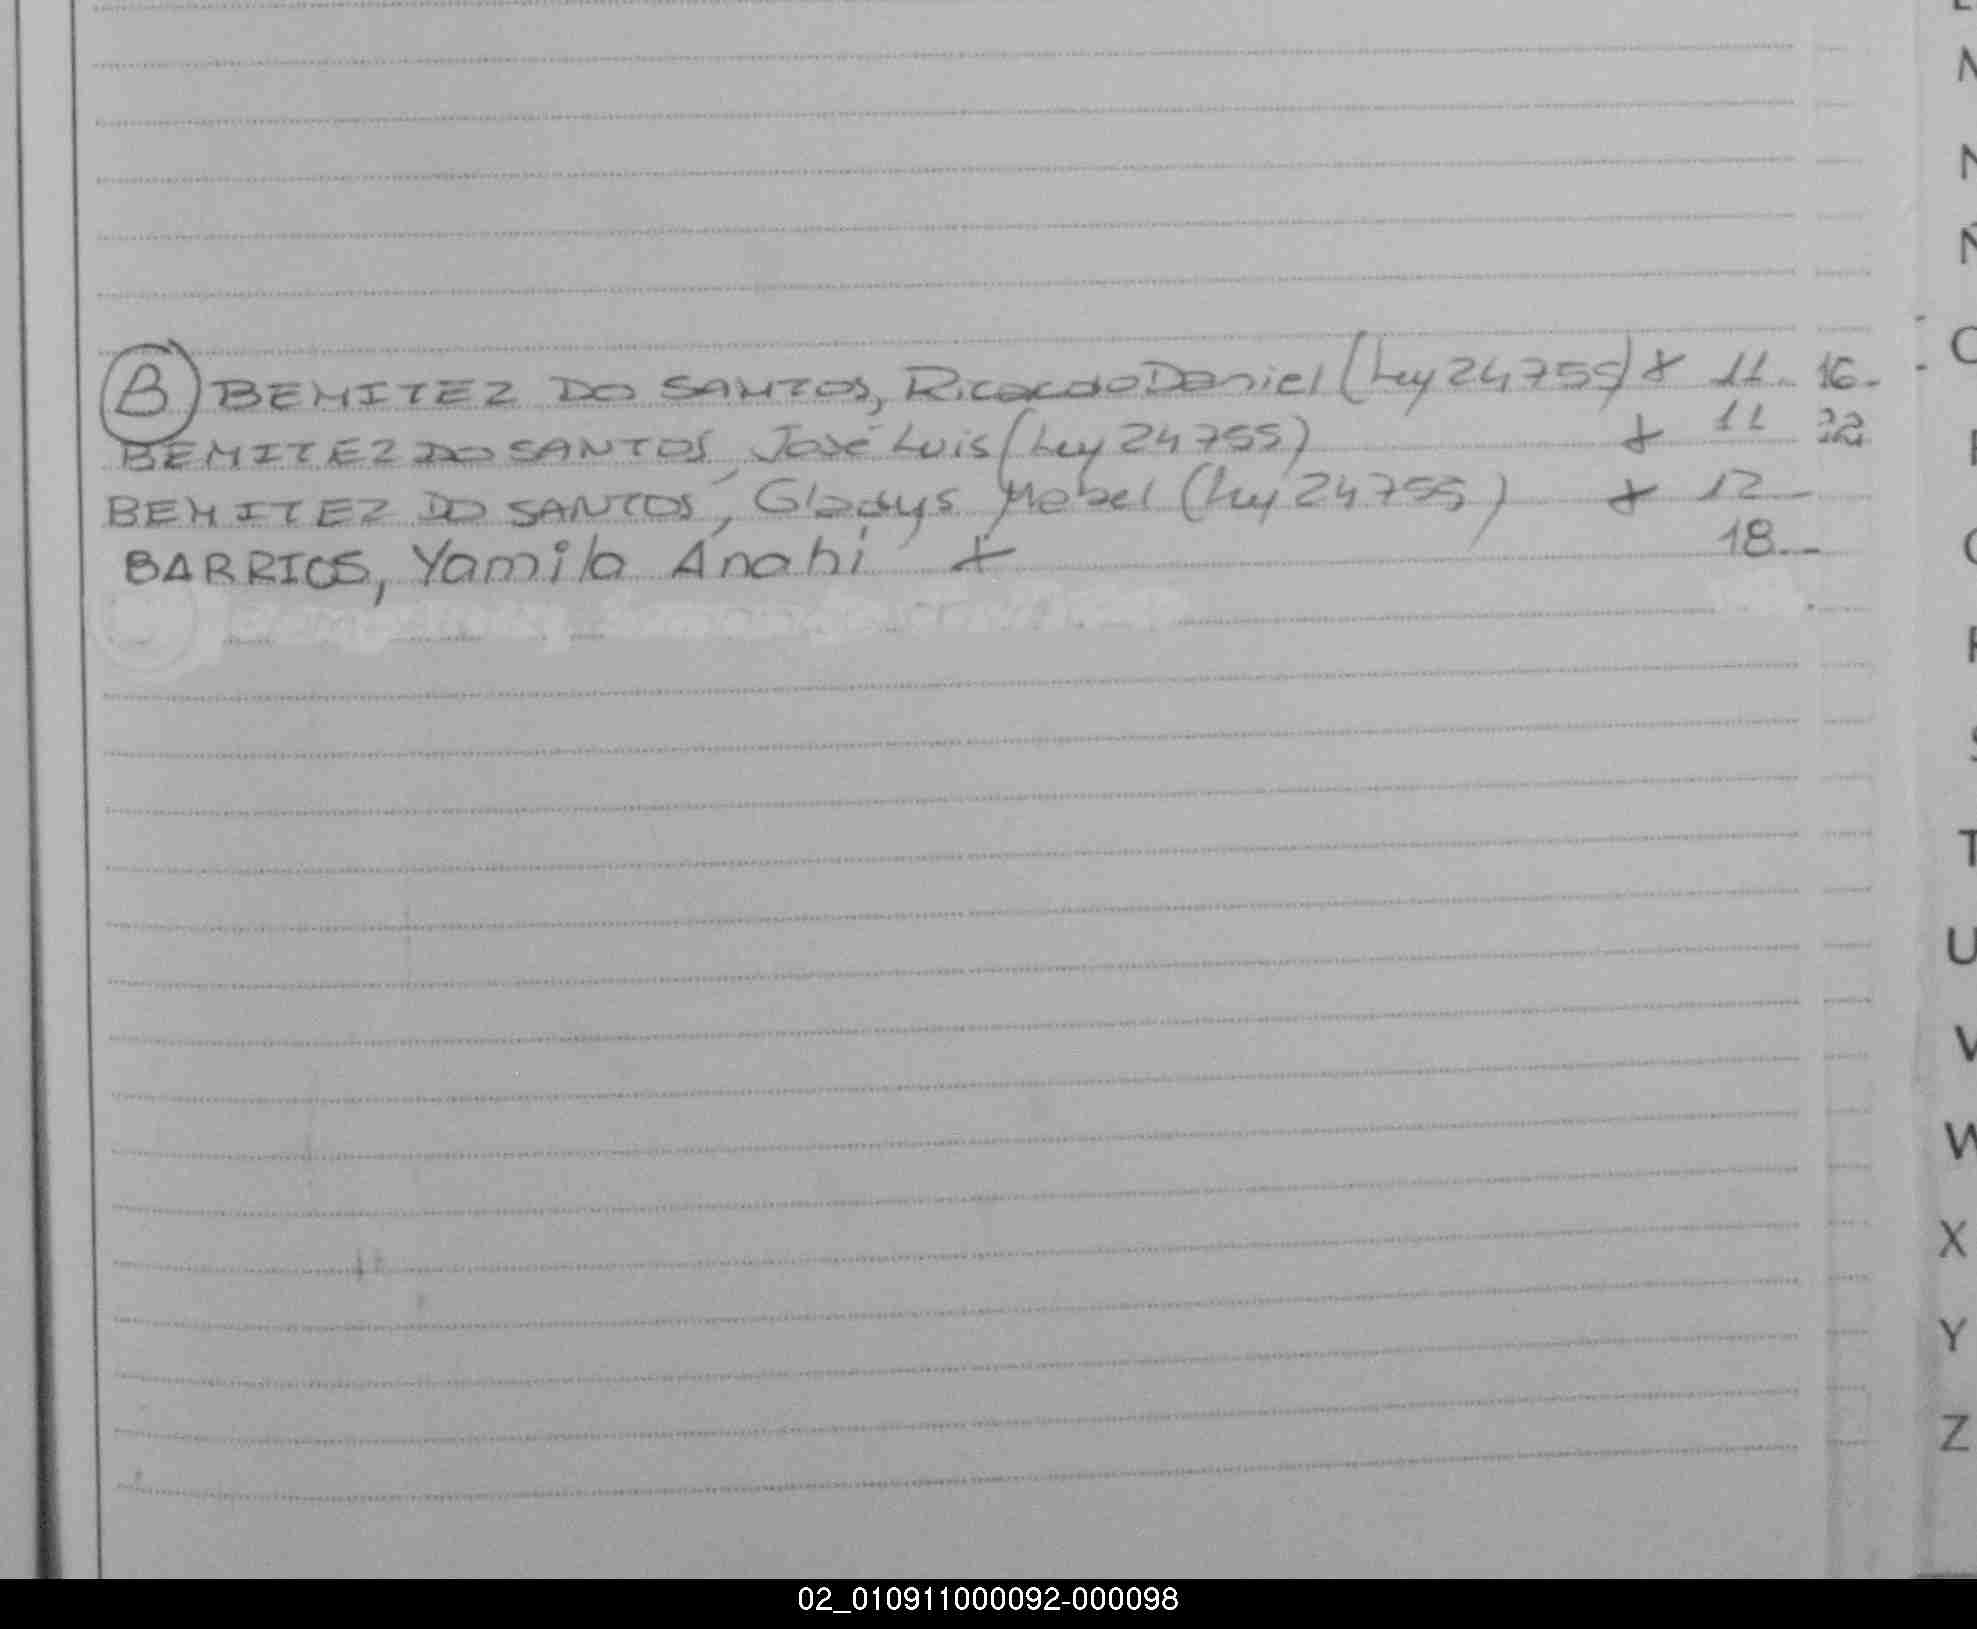 B BENITEZ DO SANTOS, Ricardo Daniel (Ley 24755) + 11 16
BENITEZ DO SANTOS, José Luis (Ley 24755) + 11 22
BENITEZ DO SANTOS, Gladys Mabel (Ley 24755) + 12
BARRIOS, Yamila Anahi + 18
N
N
Ñ
O
S
T
U
V
W
X
Y
Z
02_010911000092-000098